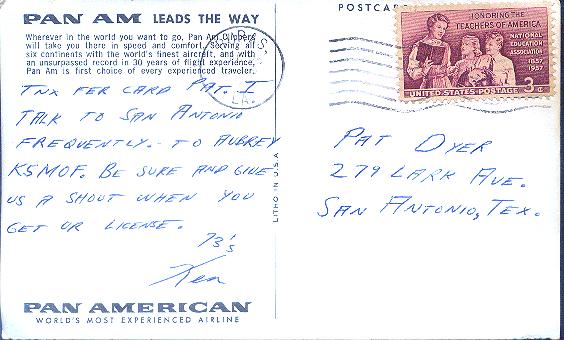 PAN AM LEADS THE WAY
Wherever in the world you want to go, Pan Am Clippers
will take you there in speed and comfort. Serving all
six continents with the world's finest aircraft, and with
an unsurpassed record in 30 years of flight experience,
Pan Am is first choice of every experienced traveler.
TNX FER CARD PAT. I
TALK TO SAN ANTONIO
FREQUENTLY - TO AUBREY
K5MOF. BE SURE AND GIVE
US A SHOUT WHEN YOU
GET UR LICENSE.
73's
Ken
PAN AMERICAN
WORLD'S MOST EXPERIENCED AIRLINE
LITHO IN U.S.A.
LA.
POSTCARD
HONORING THE
TEACHERS OF AMERICA
NATIONAL
EDUCATION
ASSOCIATION
1857
1957
UNITED STATES POSTAGE 3¢
PAT DYER
279 LARK AVE.
SAN ANTONIO, TEX.